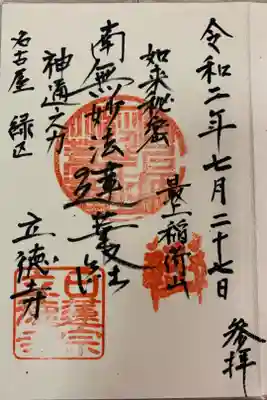 参拝
令和二年七月二十七日
最上稲荷山
如来秘密
南無妙法蓮華経
神通之力
立徳寺
名古屋 緑区
日蓮宗